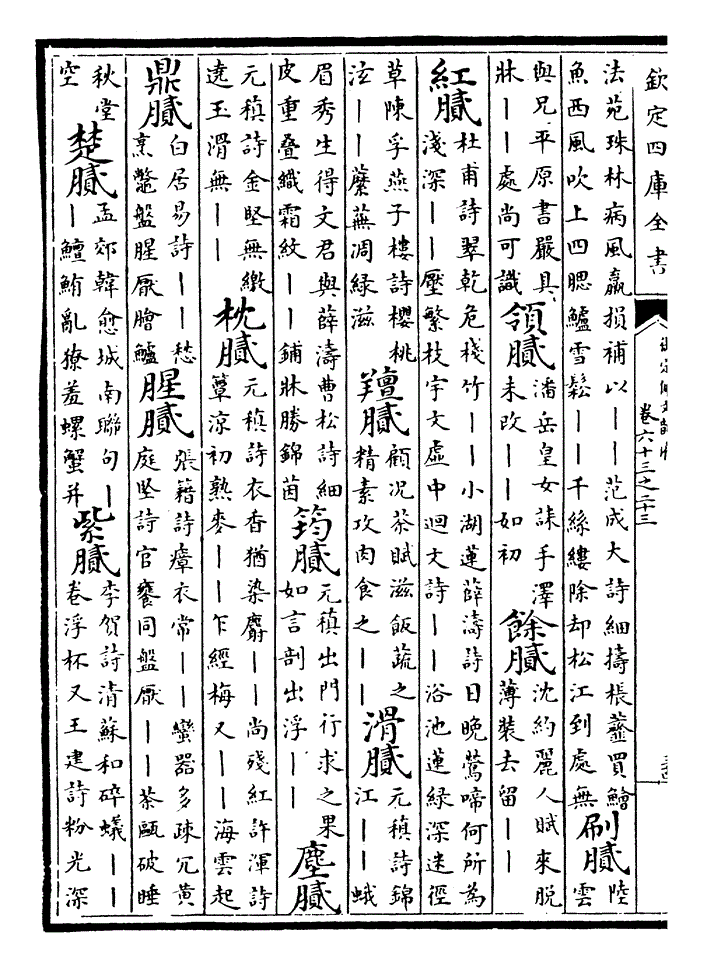 欽定四庫全書
卷六十三之二十三
法苑珠林病風羸損補以丨丨范成大詩細擣棖虀買鱠
魚西風吹上四腮鱸雪鬆丨丨千絲縷除却松江到處無
刷膩
陸
雲
與兄平原書嚴具
牀丨丨處尚可識
領膩
潘岳皇女誄手澤
未改丨丨如初
餘膩
沈約麗人賦來脫
薄裝去留丨丨
紅膩
杜甫詩翠乾危棧竹丨丨小湖蓮薛濤詩日晚鶯啼何所為
淺深丨丨壓繁枝宇文虛中迴文詩丨丨浴池蓮綠深迷徑
草陳孚燕子樓詩櫻桃
泫丨丨蘼蕪凋綠滋
羶膩
顧況茶賦滋飯蔬之
精素攻肉食之丨丨
滑膩
元稹詩錦
江丨丨蛾
眉秀生得文君與薛濤曹松詩細
皮重叠織霜紋丨丨鋪牀勝錦茵
筠膩
元稹出門行求之果
如言剖出浮丨丨
塵膩
元稹詩金堅無繳
遶玉滑無丨丨
枕膩
元稹詩衣香猶染麝丨丨尚殘紅許渾詩
簟涼初熟麥丨丨乍經梅又丨丨海雲起
鼎膩
白居易詩丨丨愁
烹鼈盤腥厭膾鱸
腥膩
張籍詩瘴衣常丨丨蠻器多疎冗黃
庭堅詩官饔同盤厭丨丨茶甌破睡
秋堂
空
楚膩
孟郊韓愈城南聯句丨
丨鱣鮪亂獠羞螺蟹并
紫膩
李賀詩清蘇和碎蟻丨丨
卷浮杯又王建詩粉光深